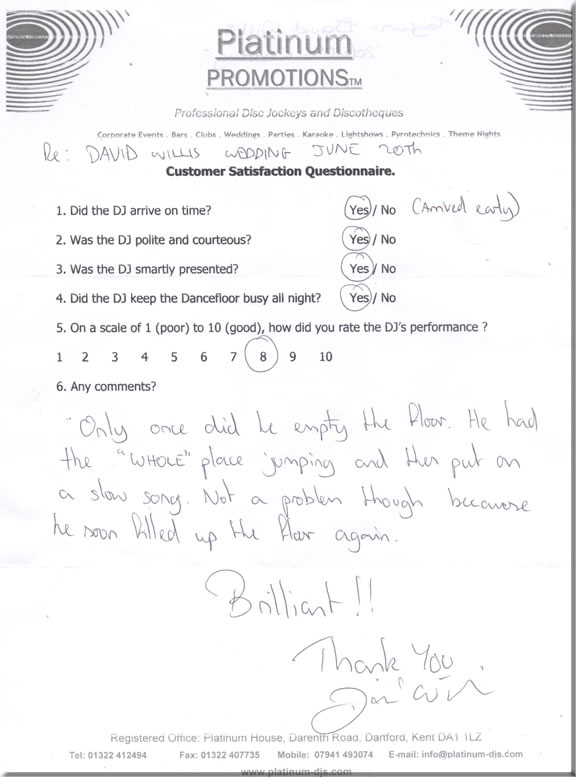 Platinum
PROMOTIONS™
Professional Disc Jockeys and Discotheques
Corporate Events . Bars . Clubs . Weddings . Parties . Karaoke . Lightshows . Pyrotechnics . Theme Nights
Re: DAVID WILLIS WEDDING JUNE 20TH
Customer Satisfaction Questionnaire.
1. Did the DJ arrive on time? Yes / No (Arrived early)
2. Was the DJ polite and courteous? Yes / No
3. Was the DJ smartly presented? Yes / No
4. Did the DJ keep the Dancefloor busy all night? Yes / No
5. On a scale of 1 (poor) to 10 (good), how did you rate the DJ's performance ?
1 2 3 4 5 6 7 8 9 10
6. Any comments?
Only once did he empty the floor. He had
the "WHOLE" place jumping and then put on
a slow song. Not a problem though because
he soon filled up the floor again.
Brilliant!!
Thank You
Registered Office: Platinum House, Darenth Road, Dartford, Kent DA1 1LZ
Tel: 01322 412494 Fax: 01322 407735 Mobile: 07941 493074 E-mail: info@platinum-djs.com
www.platinum-djs.com